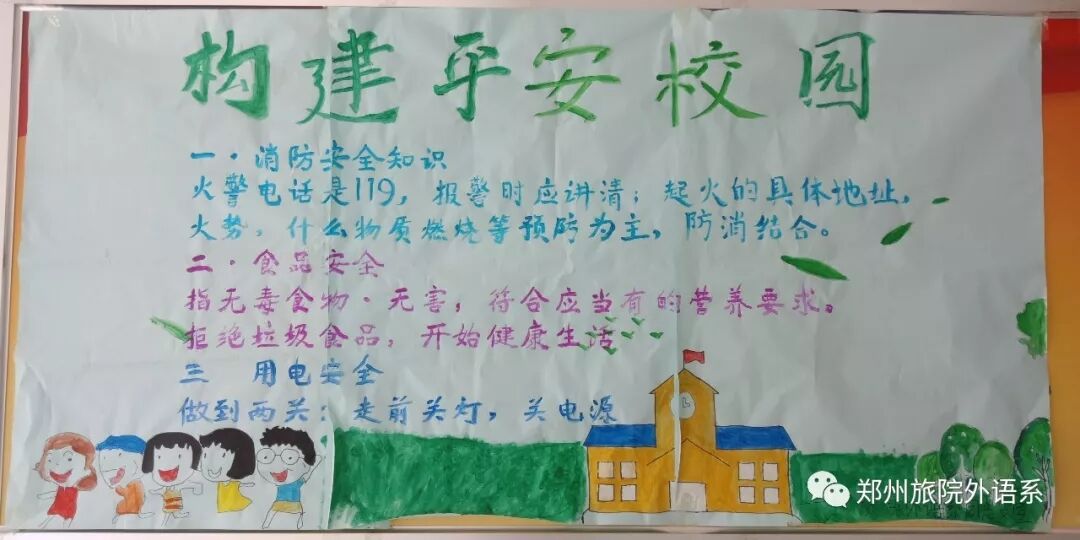 构建平安校园
一·消防安全知识
火警电话是119，报警时应讲清：起火的具体地址，
火势，什么物质燃烧等预防为主，防消结合。
二·食品安全
指无毒食物·无害，符合应当有的营养要求。
拒绝垃圾食品，开始健康生活
三 用电安全
做到两关：走前关灯，关电源
郑州旅院外语系